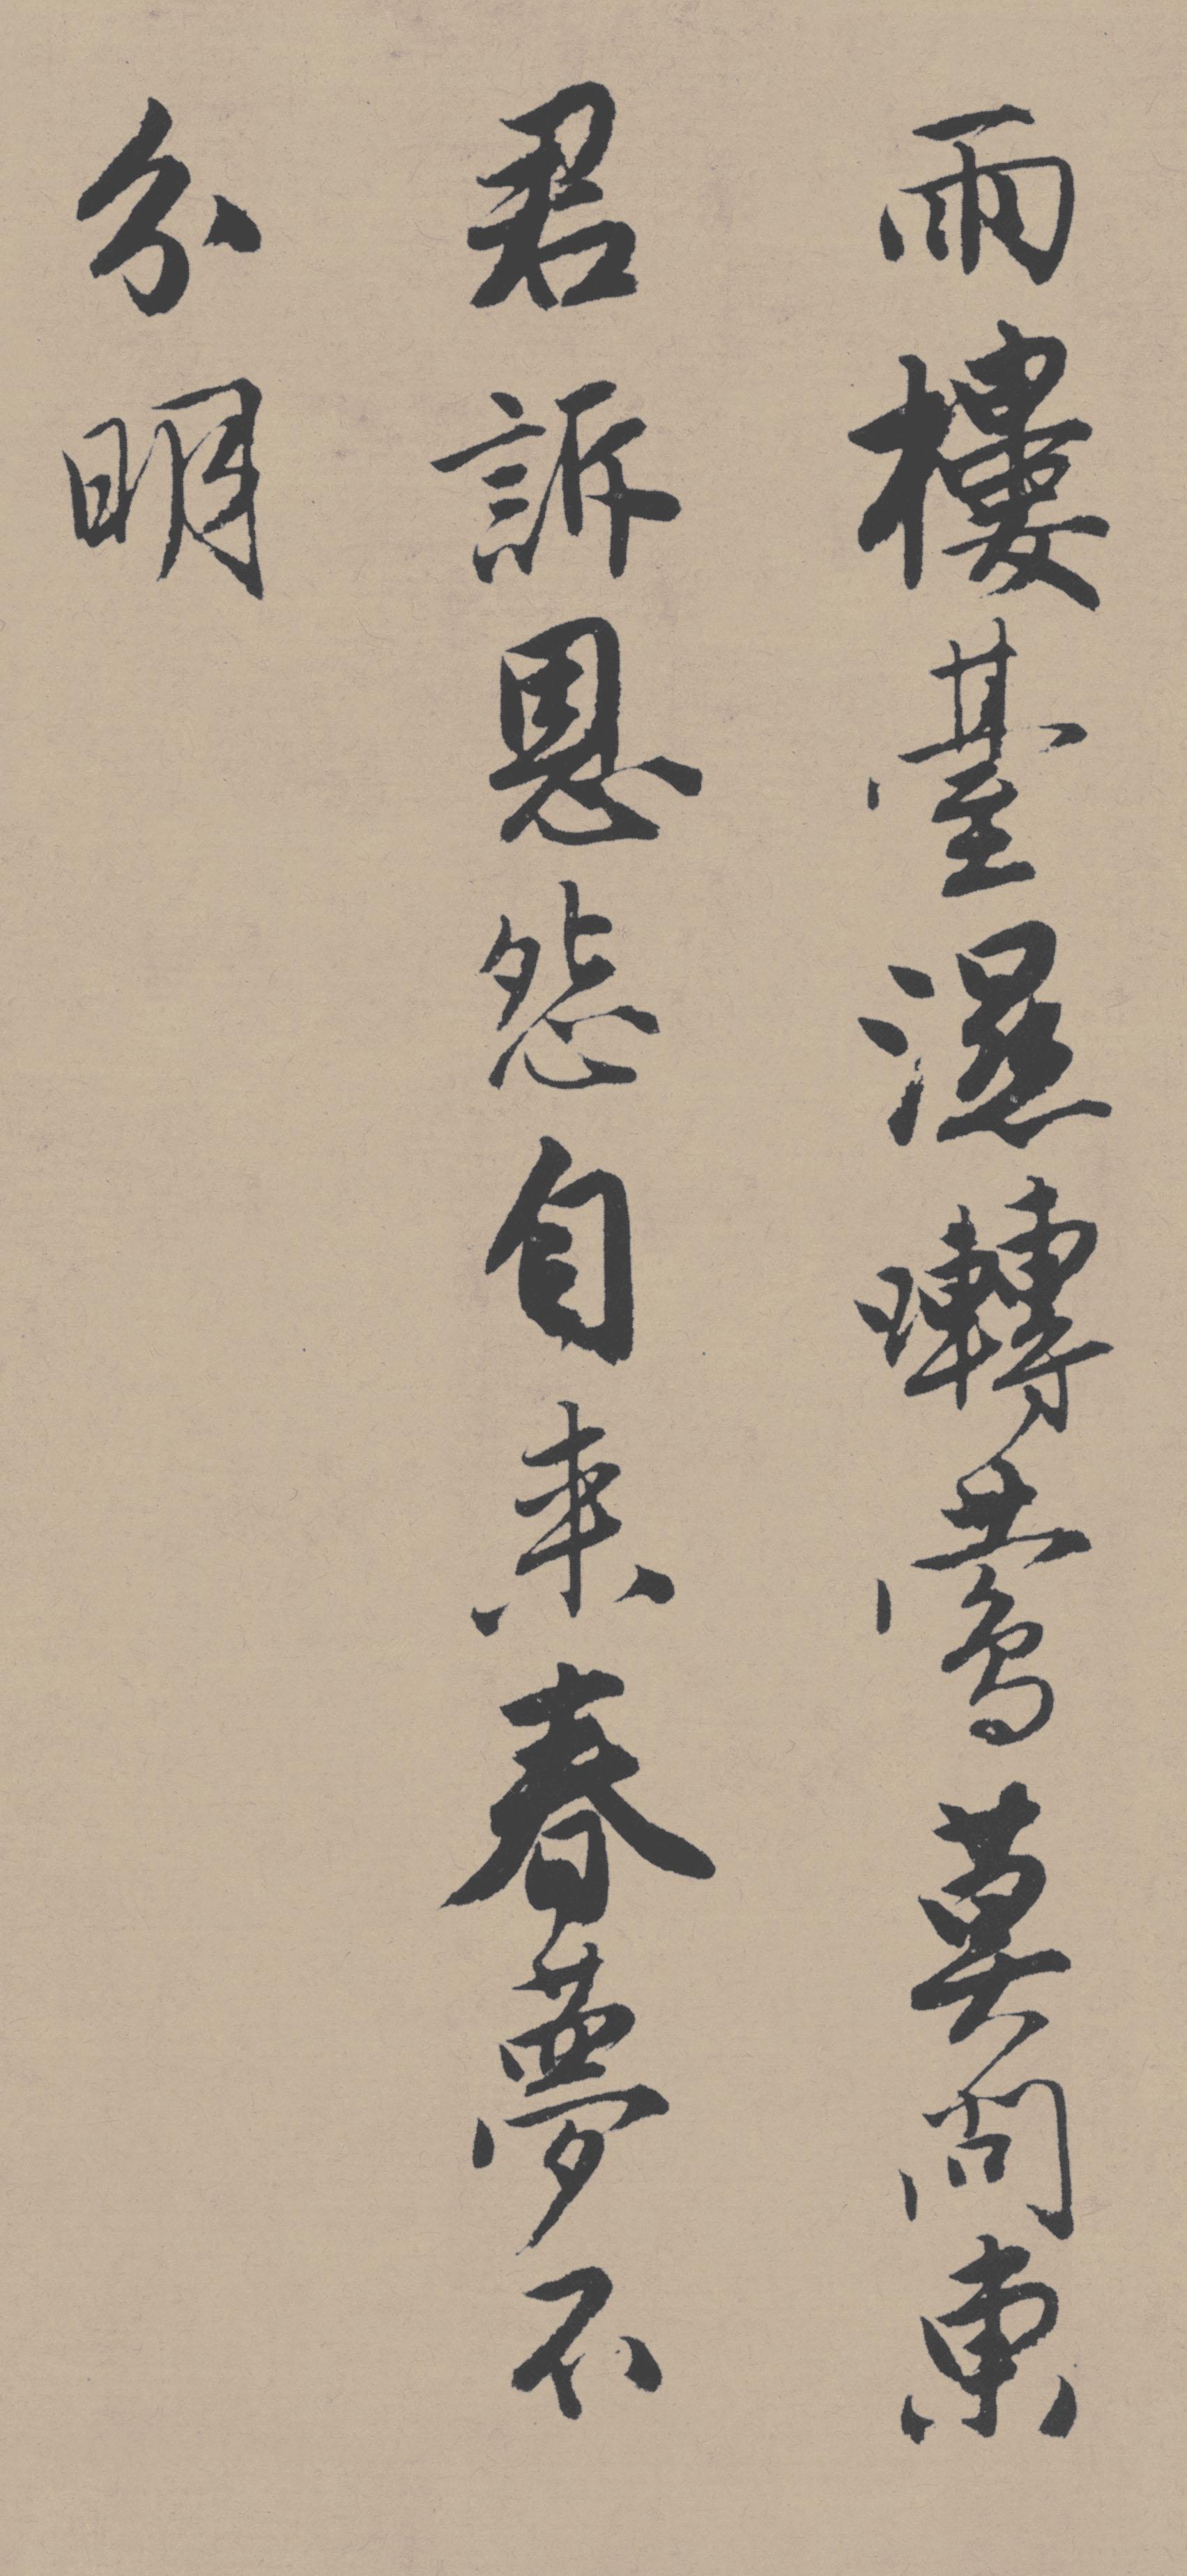 雨樓臺濕囀鶯莫問東
君訴恩怨自來春夢不
分明